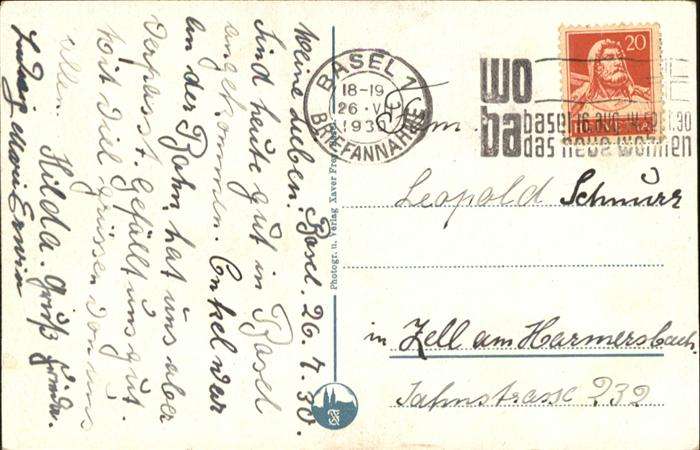 Basel. 26.7.30.
Meine Lieben.
Sind heute gut in Basel
angekommen. Onkel war
an der Bahn, hat uns aber
verpasst. Gefällt uns gut.
Mit viel Grüssen von uns
allen.
Hilda. Gruß
Ludwig Maria Erwin
Photogr. u. Verlag Xaver
BASEL 1
18-19
26. VII
193
BRIEFANNAHME
wo
ba
basel 16. aug. 14. sept. 30
das neue wohnen
20
Fam.
Leopold Schnurr
in Zell am Harmersbach
232